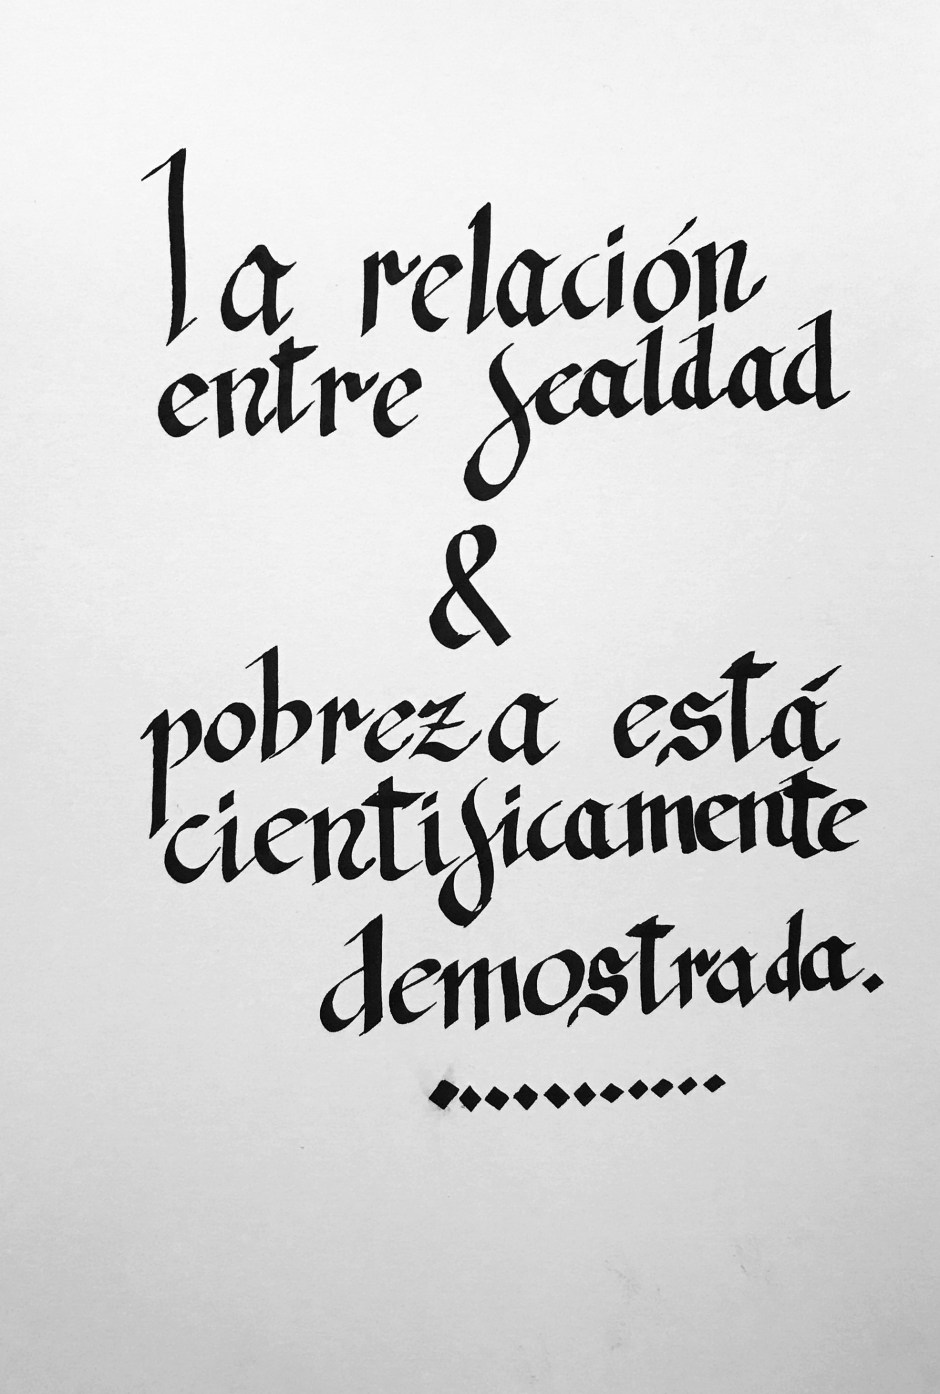 la relación
entre fealdad
&
pobreza está
cientificamente
demostrada.